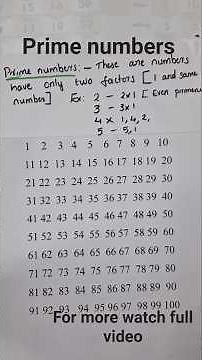 Prime numbers
Prime numbers:- These are numbers
have only two factors [1 and same
number] Ex: 2 - 2x1 [Even
3 - 3x1
4 x 1, 4, 2,
5 - 5,1
1 2 3 4 5 6 7 8 9 10
11 12 13 14 15 16 17 18 19 20
21 22 23 24 25 26 27 28 29 30
31 32 33 34 35 36 37 38 39 40
41 42 43 44 45 46 47 48 49 50
51 52 53 54 55 56 57 58 59 60
61 62 63 64 65 66 67 68 69 70
71 72 73 74 75 76 77 78 79 80
81 82 83 84 85 86 87 88 89 90
91 92 93 94 95 96 97 98 99 100
For more watch full
video